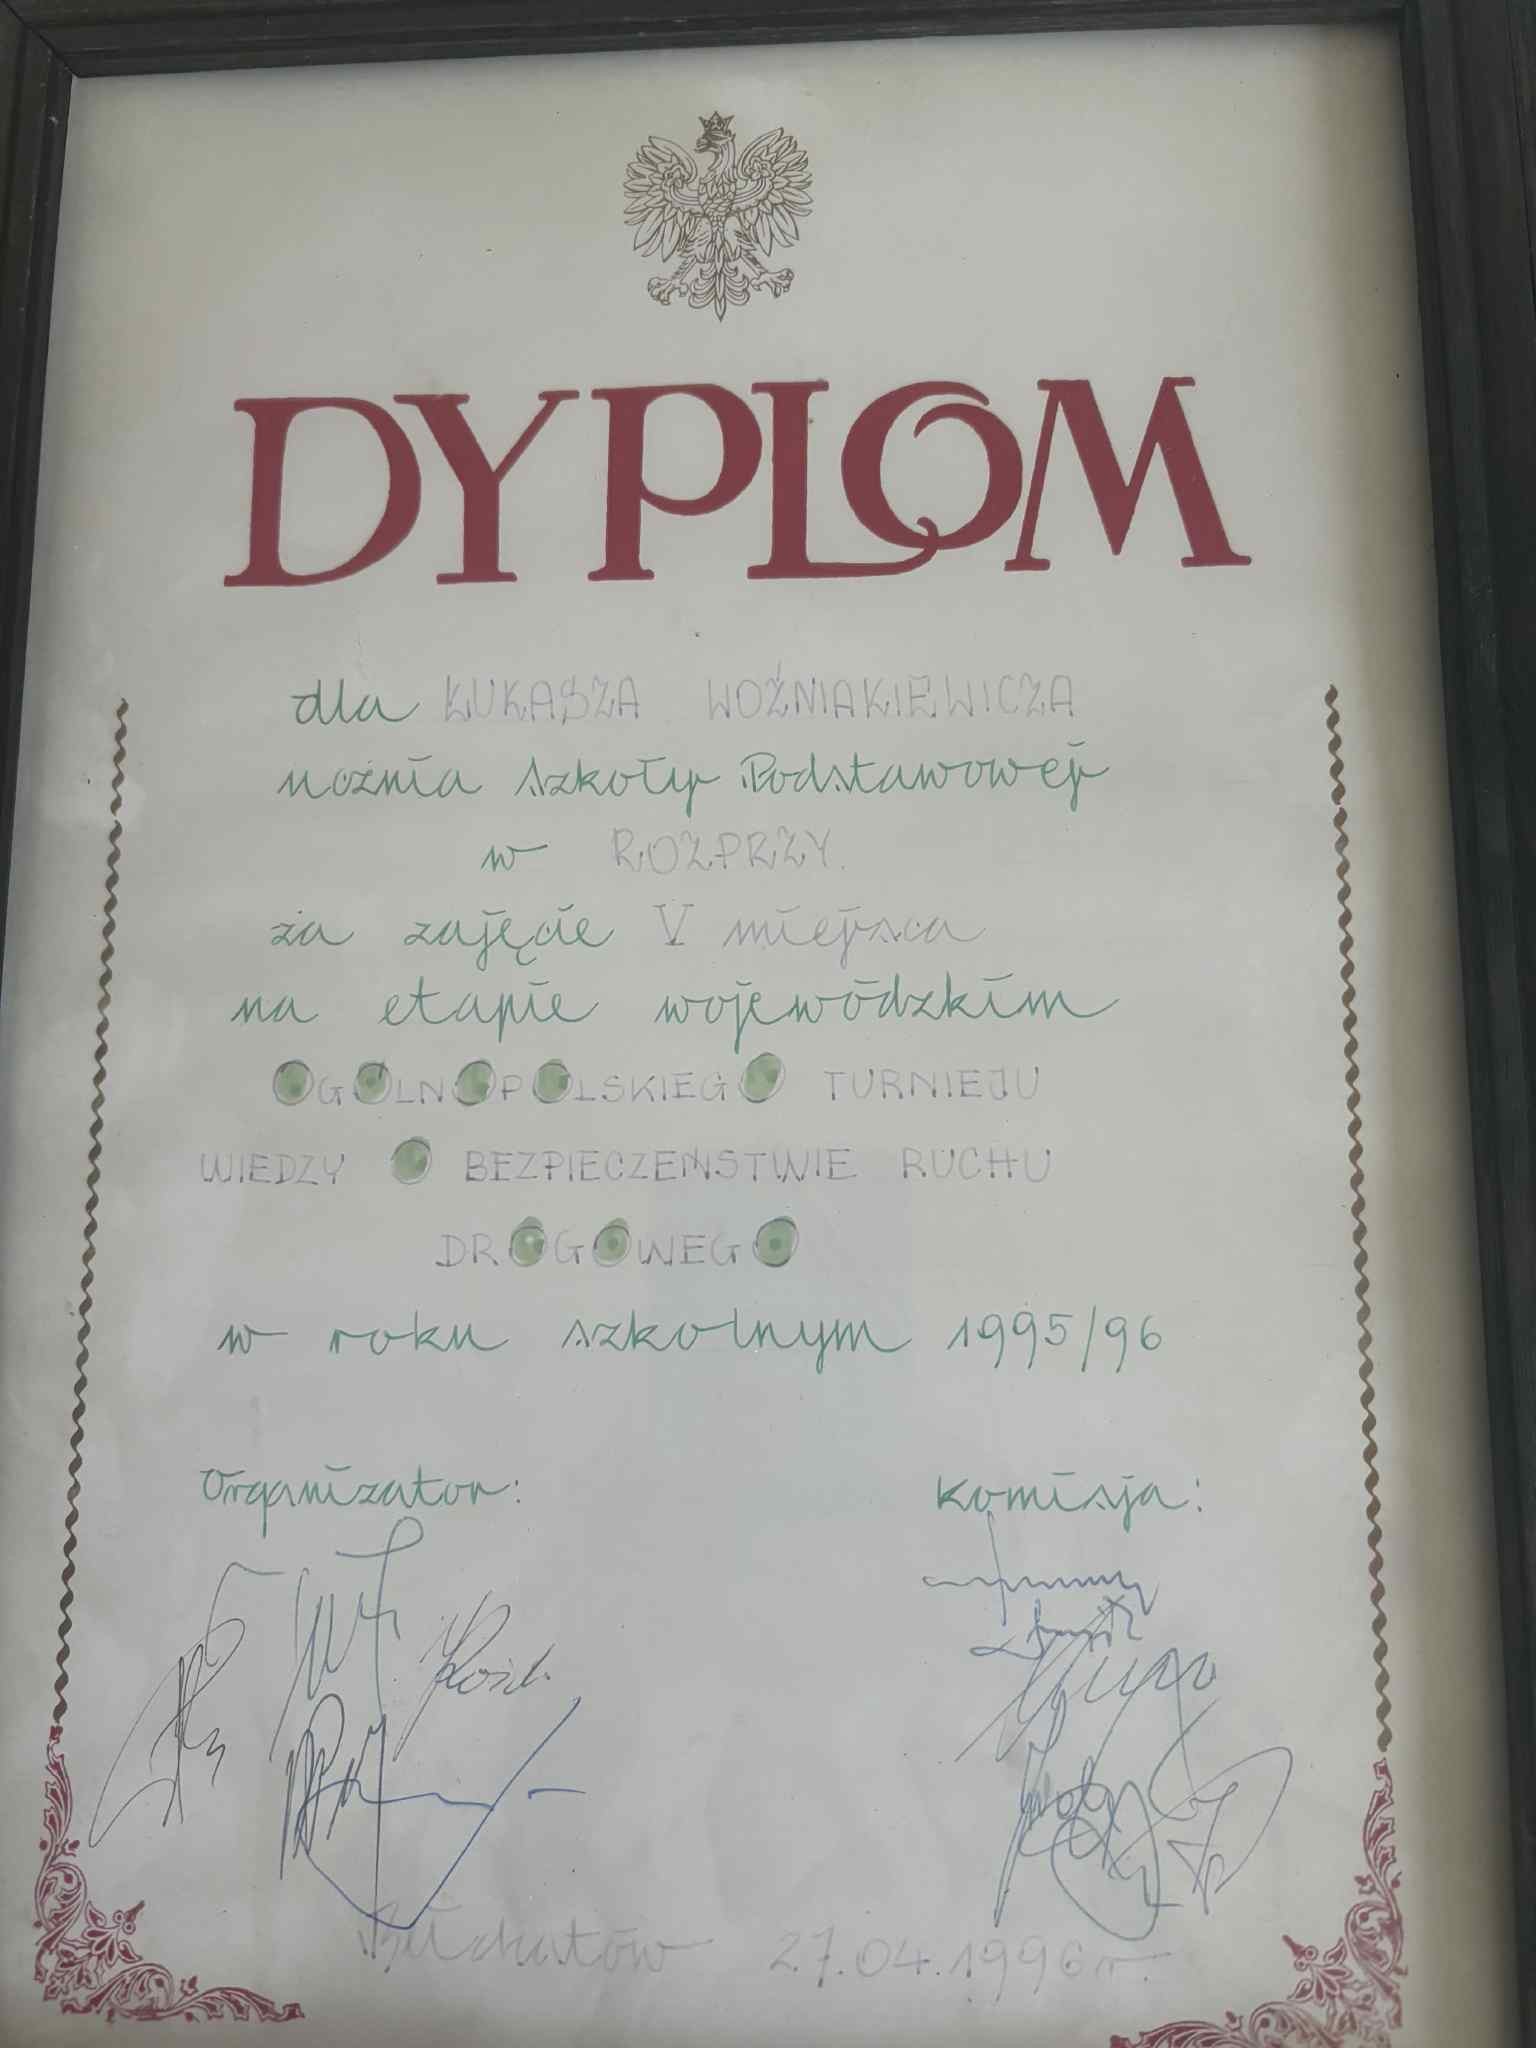 DYPLOM
dla ŁUKASZA WOŹNIAKIEWICZA
ucznia Szkoły Podstawowej
w ROZPRZY.
za zajęcie V miejsca
na etapie wojewódzkim
OGÓLNOPOLSKIEGO TURNIEJU
WIEDZY O BEZPIECZEŃSTWIE RUCHU
DROGOWEGO
w roku szkolnym 1995/96
Organizator:
Komisja:
27.04.1996r.